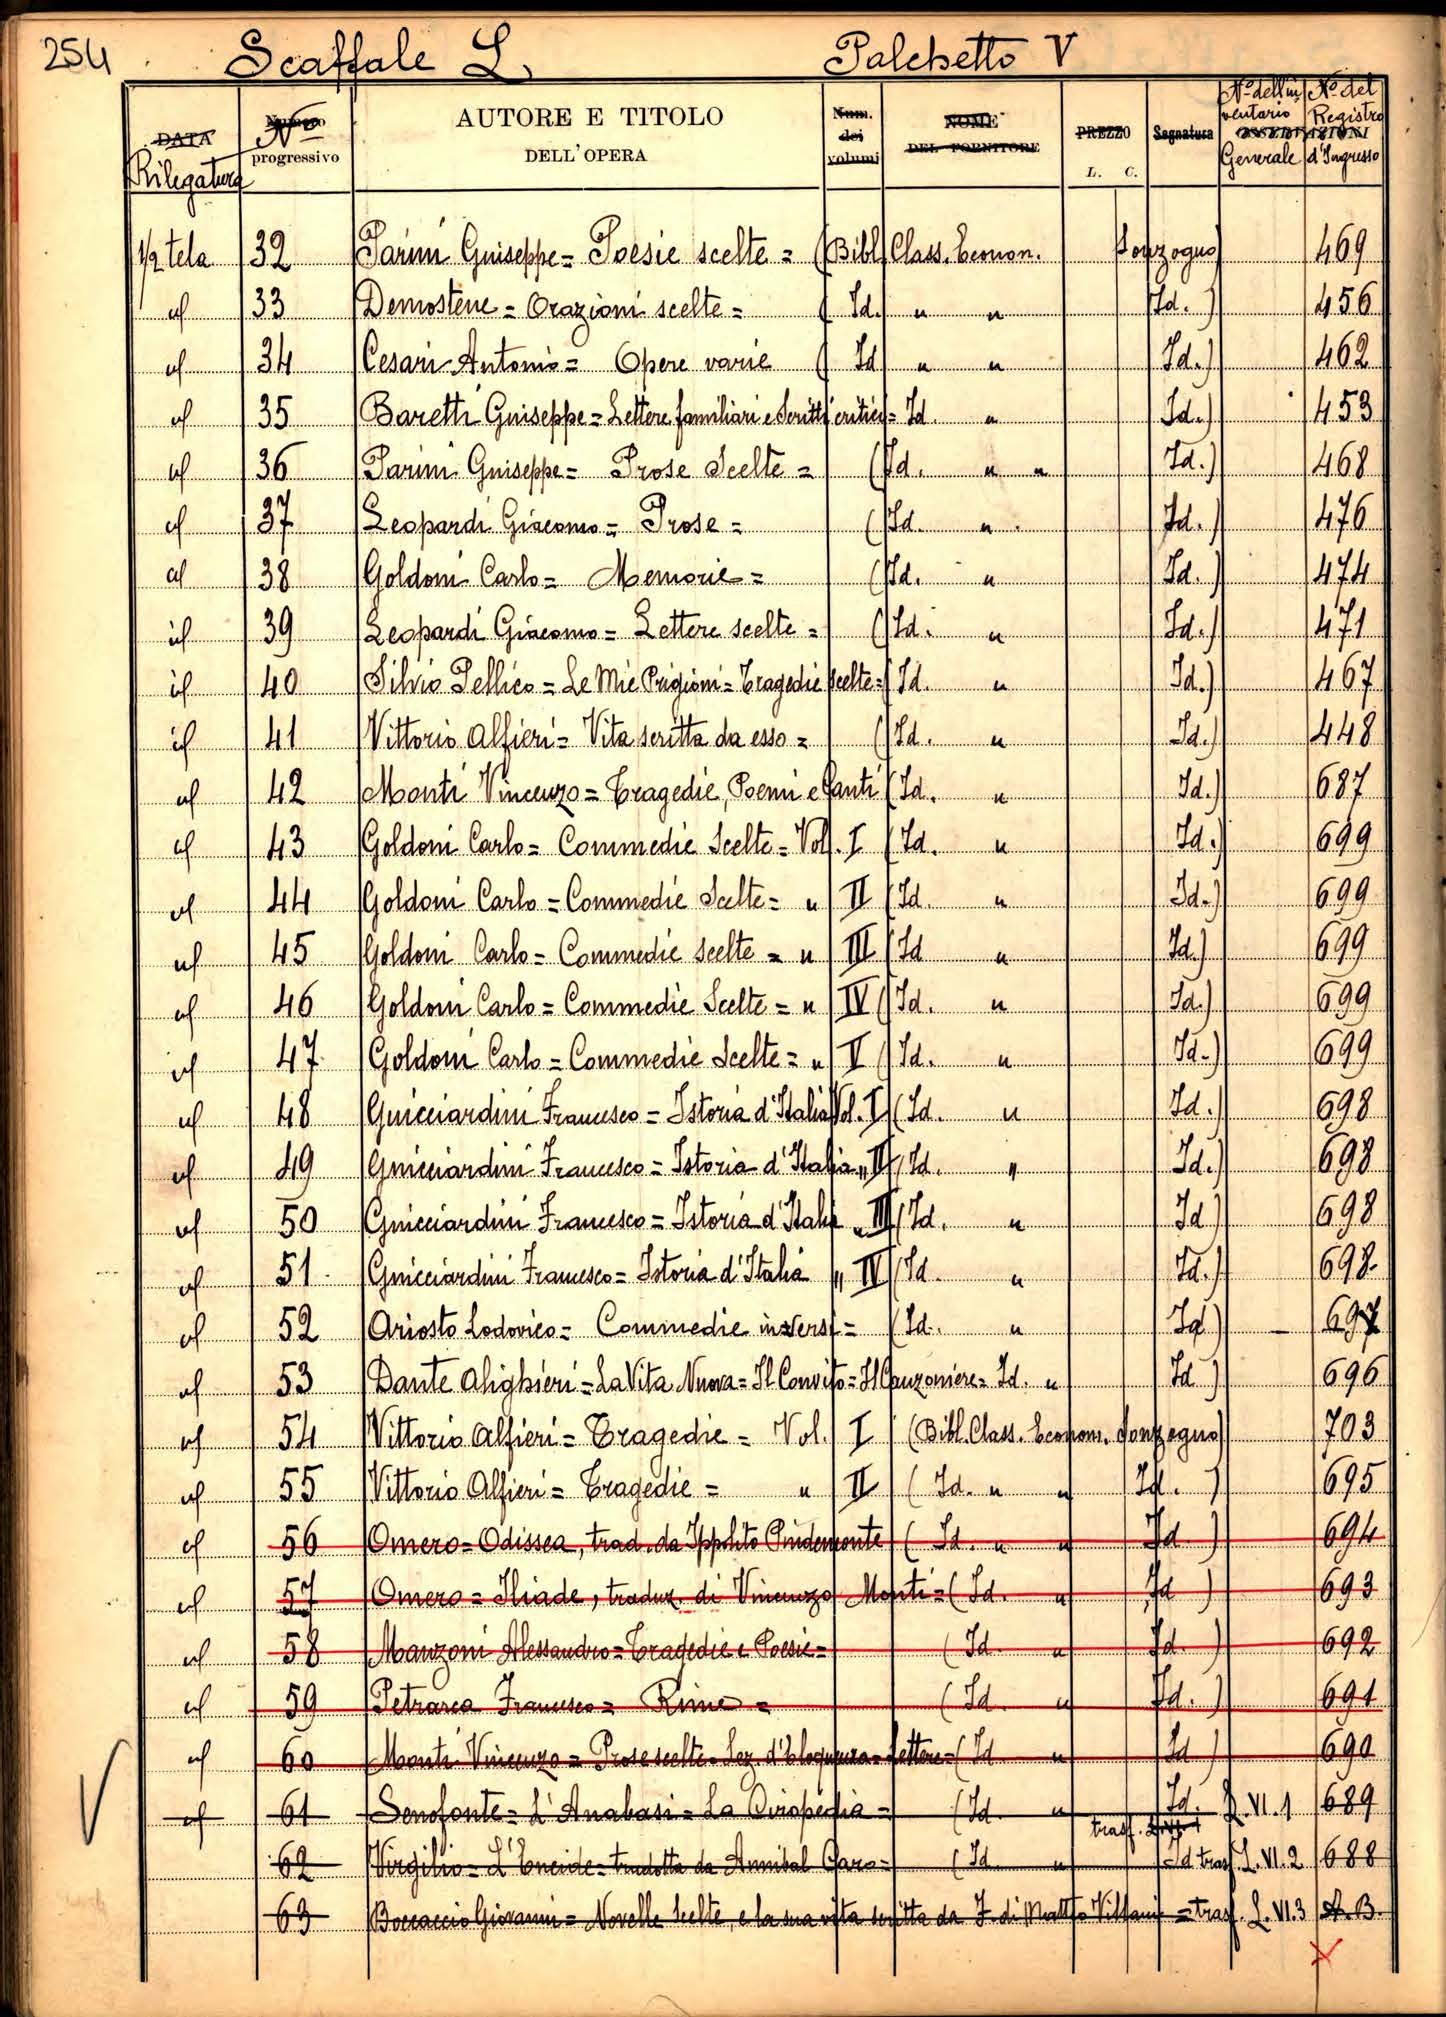 254 Scaffale L, Palchetto V
DATA Rilegatura
Numero No progressivo
AUTORE E TITOLO
DELL'OPERA
Num. dei volumi
NOME DEL FORNITORE
PREZZO L. C.
Segnatura
OSSERVAZIONI
No dell'inventario Generale
No del Registro d'Ingresso
1/2 tela 32 Parini Giuseppe = Poesie scelte = (Bibl. Class. Econom. Sonzogno) 469
id 33 Demostene = Orazioni scelte = ( Id. " " Id. ) 456
id 34 Cesari Antonio = Opere varie ( Id " " Id.) 462
id 35 Baretti Giuseppe = Lettere familiari e Scritti critici = Id. " Id.) 453
id 36 Parini Giuseppe = Prose Scelte = (Id. " " Id.) 468
id 37 Leopardi Giacomo = Prose = (Id. " . Id. ) 476
id 38 Goldoni Carlo = Memorie = (Id. " Id. ) 474
id 39 Leopardi Giacomo = Lettere scelte = (Id. " Id.) 471
id 40 Silvio Pellico = Le Mie Prigioni = Tragedie scelte = (Id. " Id.) 467
id 41 Vittorio Alfieri = Vita scritta da esso = (Id. " Id.) 448
id 42 Monti Vincenzo = Tragedie, Poemi e Canti (Id. " Id.) 687
id 43 Goldoni Carlo = Commedie Scelte = Vol. I (Id. " Id.) 699
id 44 Goldoni Carlo = Commedie Scelte = " II (Id. " Id.) 699
id 45 Goldoni Carlo = Commedie scelte = " III (Id " Id.) 699
id 46 Goldoni Carlo = Commedie Scelte = " IV (Id. " Id.) 699
id 47 Goldoni Carlo = Commedie Scelte = " V (Id. " Id.) 699
id 48 Guicciardini Francesco = Istoria d'Italia Vol. I (Id. " Id.) 698
id 49 Guicciardini Francesco = Istoria d'Italia " II (Id. " Id.) 698
id 50 Guicciardini Francesco = Istoria d'Italia " III (Id. " Id) 698
id 51 Guicciardini Francesco = Istoria d'Italia " IV (Id. " Id.) 698
id 52 Ariosto Lodovico = Commedie in versi = (Id. " Id) 697
id 53 Dante Alighieri = La Vita Nuova = Il Convito = Il Canzoniere = Id. " Id ) 696
id 54 Vittorio Alfieri = Tragedie = Vol. I (Bibl. Class. Econom. Sonzogno) 703
id 55 Vittorio Alfieri = Tragedie = " II ( Id. " " Id. ) 695
id 56 Omero = Odissea, trad. da Ippolito Pindemonte ( Id. " " Id. ) 694
id 57 Omero = Iliade, traduz. di Vincenzo Monti = (Id. " Id ) 693
id 58 Manzoni Alessandro = Tragedie e Poesie = (Id. " Id. ) 692
id 59 Petrarca Francesco = Rime = (Id. " Id. ) 691
id 60 Monti Vincenzo = Prose scelte = Lez. d'Eloquenza = Lettere = (Id " Id ) 690
id 61 Senofonte = L'Anabasi = La Ciropedia = (Id " Id. trasf. L.VI.1 L.VI.1 689
62 Virgilio = L'Eneide = tradotta da Annibal Caro = (Id " Id trasf. L.VI.2 688
63 Boccaccio Giovanni = Novelle Scelte, e la sua vita scritta da F. di Matteo Villani = trasf. L.VI.3 A.B.